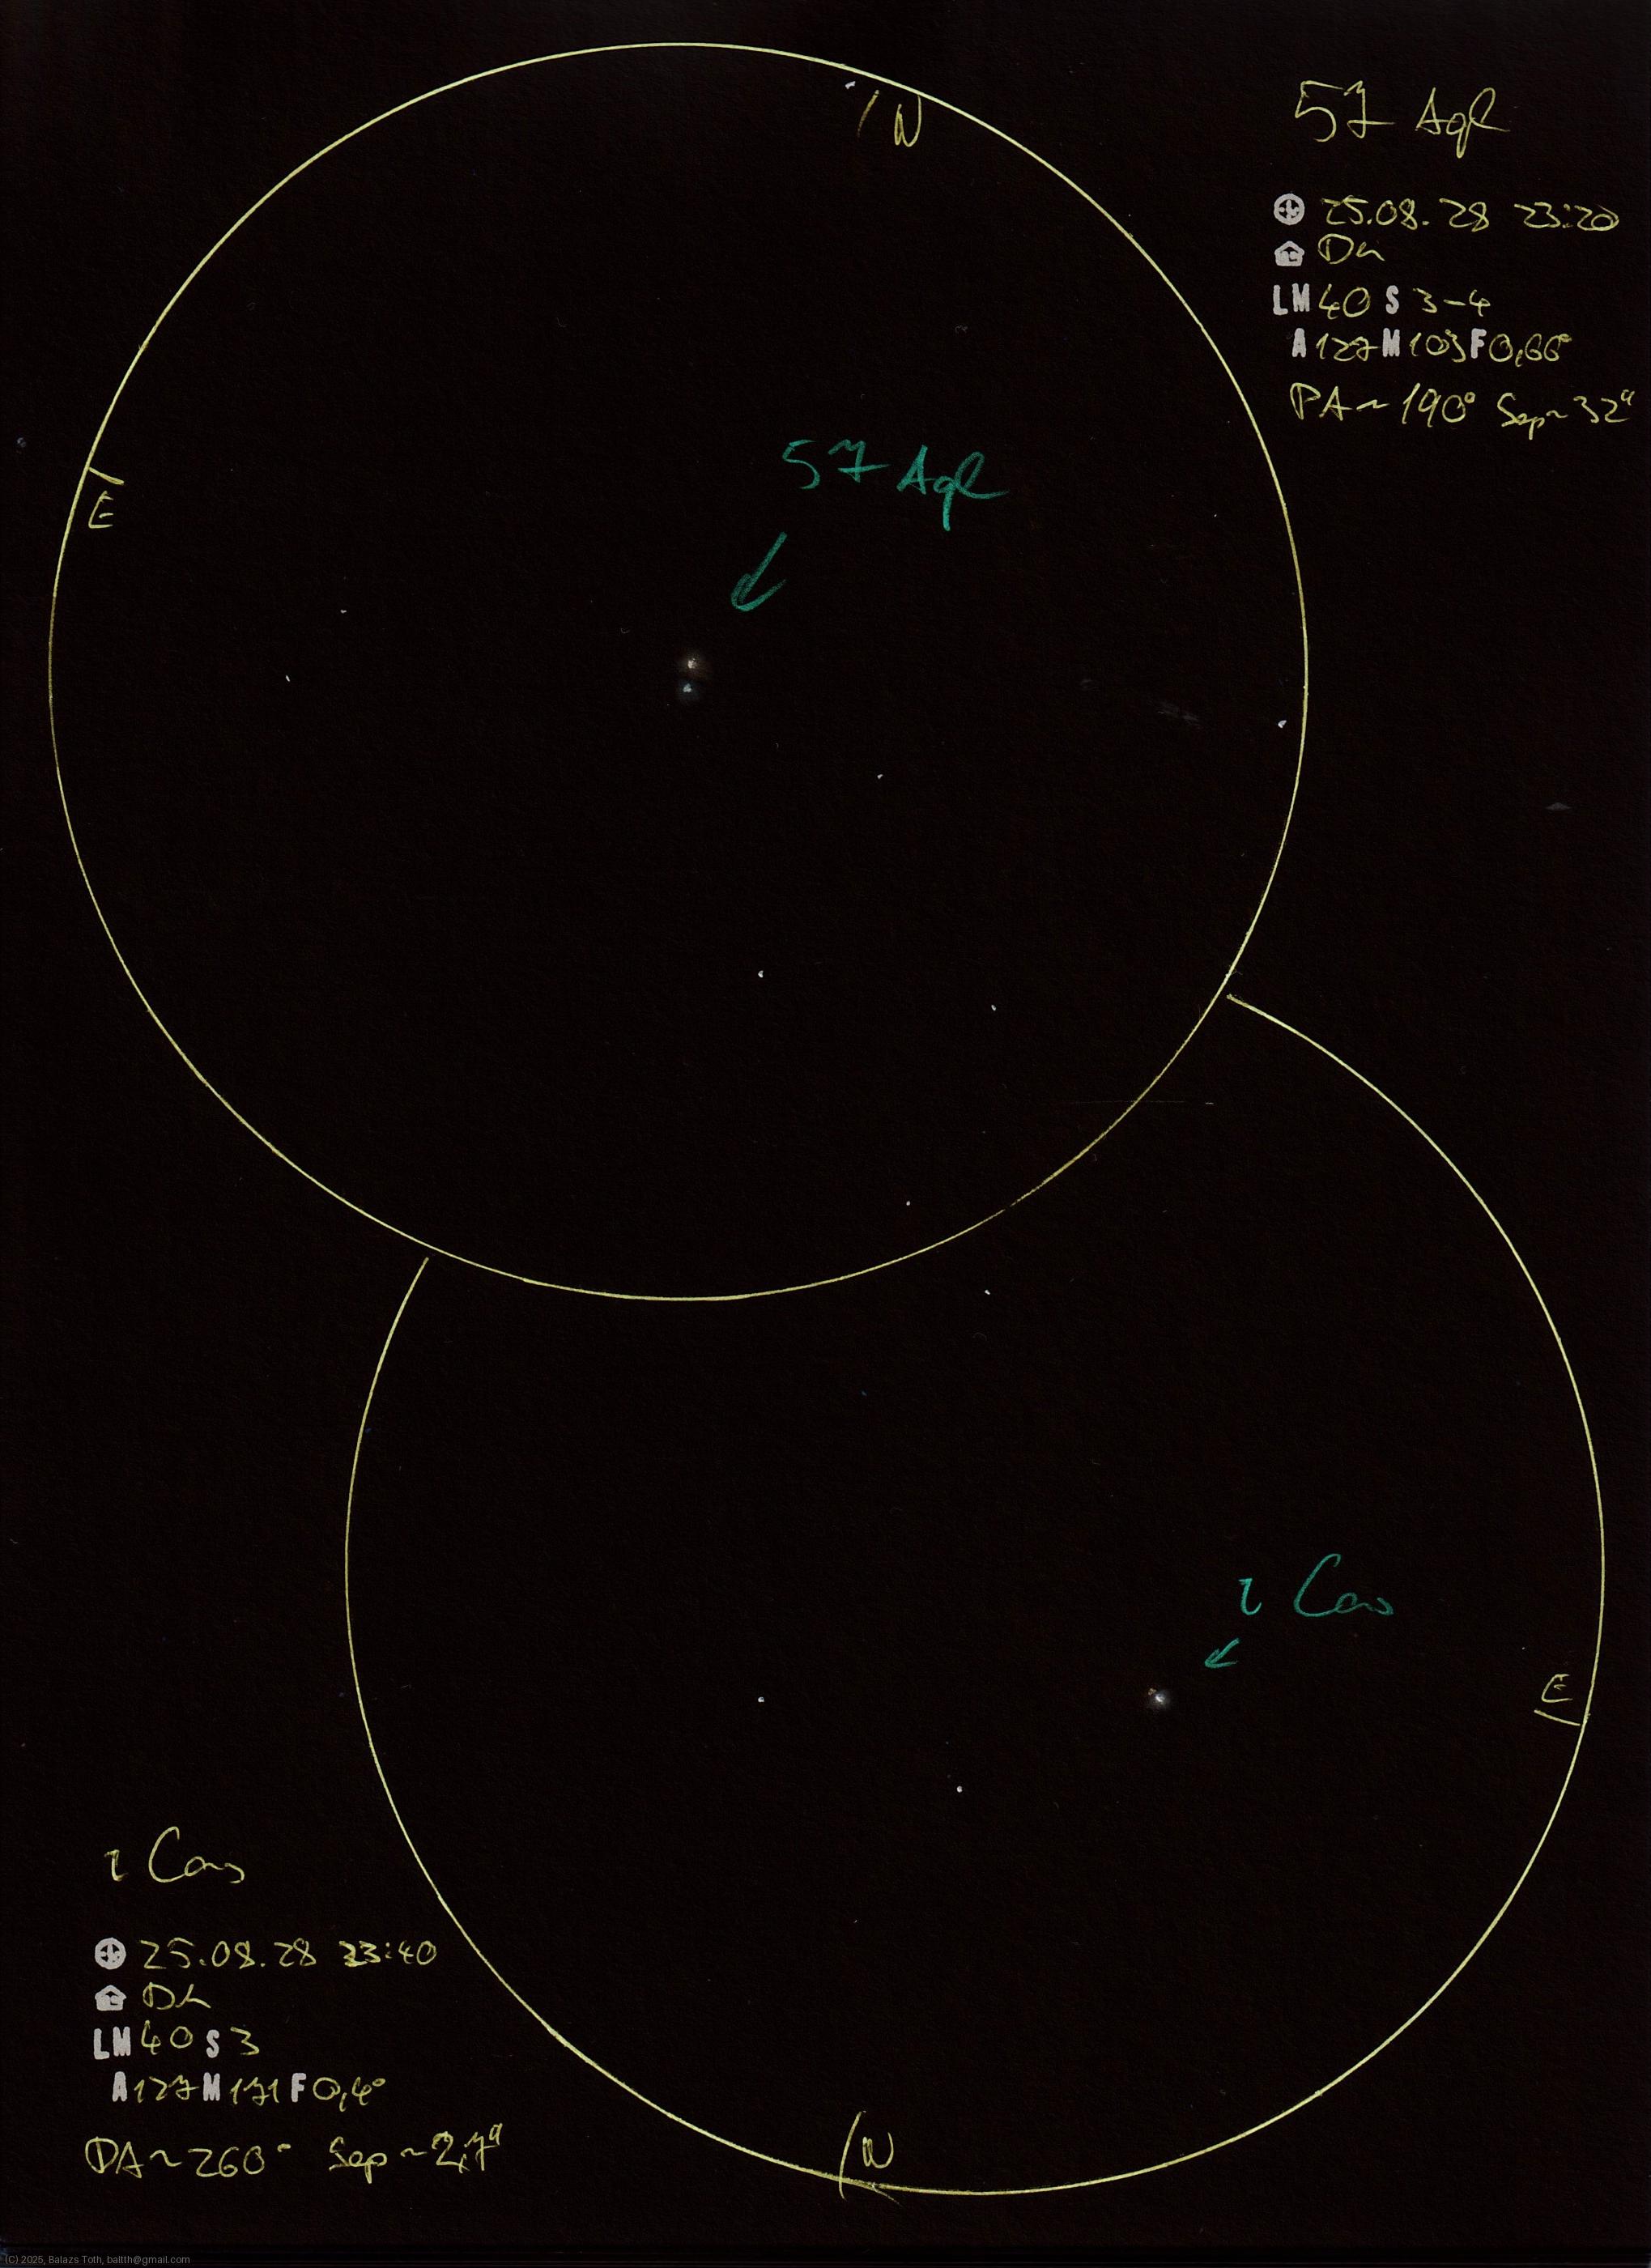 57 Aql
N
25.08.28 23:20
Da
LM 40 S 3-4
A 127 M 103 F 0,66°
PA~190° Sep~32"
E
57 Aql
ι Cas
E
ι Cas
25.08.28 23:40
LM 40 S 3
A 127 M 171 F 0,4°
PA~260° Sep~2,7"
N
(C) 2025, Balazs Toth, baltth@gmail.com